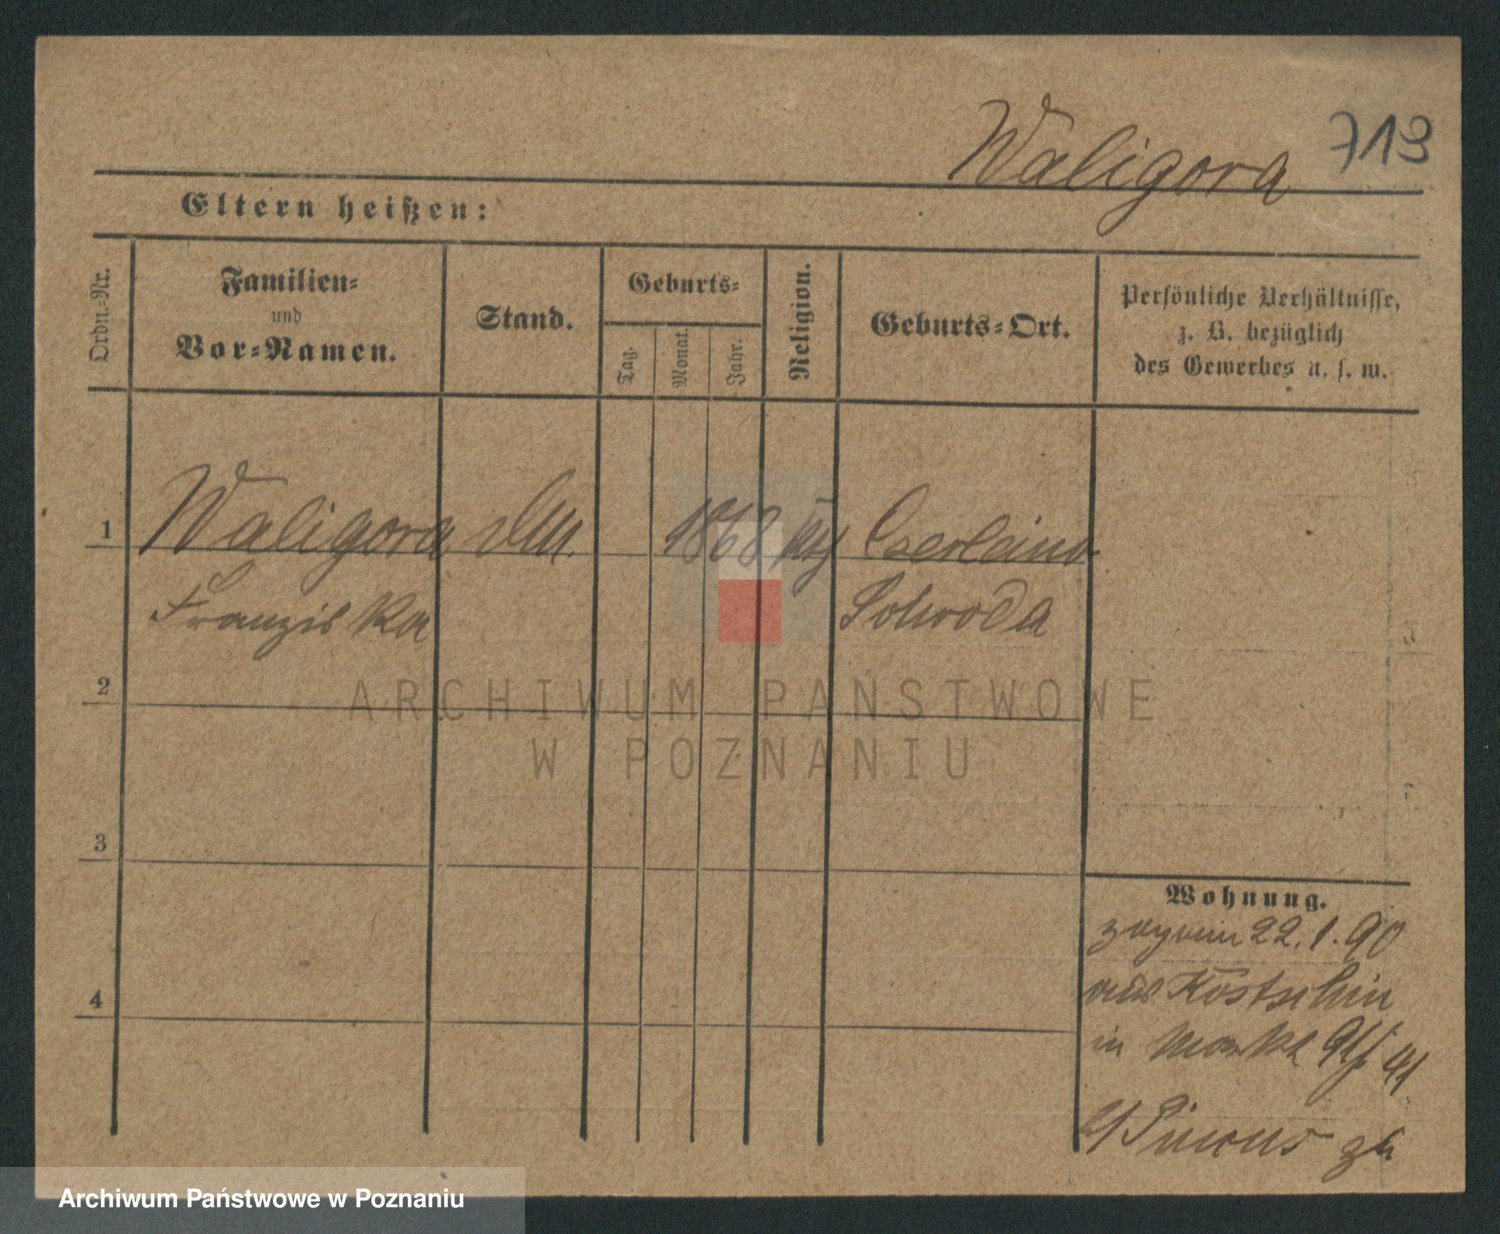 Waligora 713
Eltern heißen:
Ordn.-Nr.
Familien-
und
Vor-Namen.
Stand.
Geburts-
Tag.
Monat.
Jahr.
Religion.
Geburts-Ort.
Persönliche Verhältnisse,
z. B. bezüglich
des Gewerbes u. s. w.
1 Waligora 1868
Franziska
2
3
4
Wohnung.
22. 1. 90
aus Kostschin
in Markt 41
ARCHIWUM PAŃSTWOWE
W POZNANIU
Archiwum Państwowe w Poznaniu